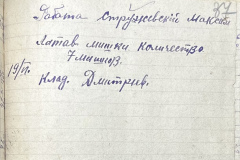 37
Работа Стружевскій Максим
Латав мишки количество
7 мишков.
19/VI.
Клад. Дмитрив.